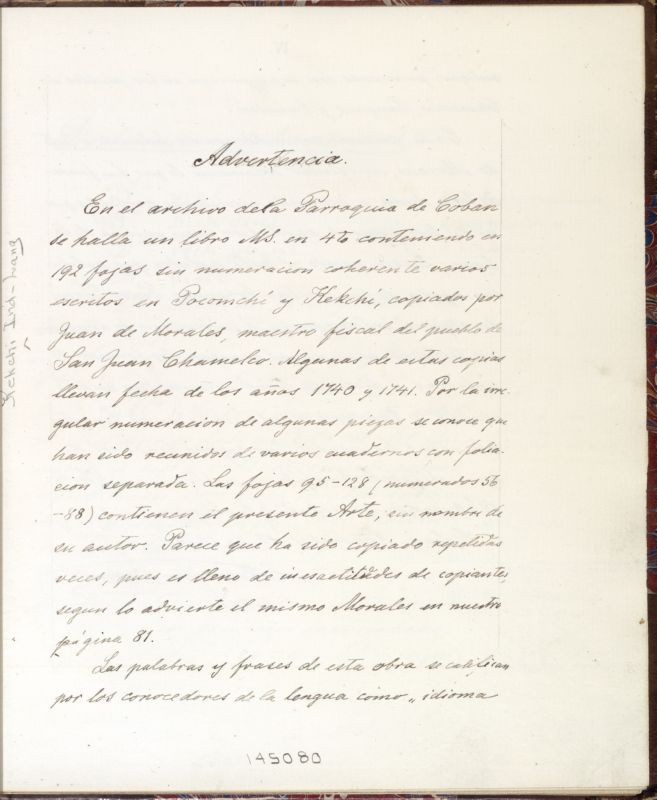 Advertencia.
En el archivo dela Parroquia de Coban
se halla un libro MS. en 4to conteniendo en
192 fojas sin numeracion coherente varios
escritos en Pocomchí y Kekchí, copiados por
Juan de Morales, maestro fiscal del pueblo de
San Juan Chamelco. Algunas de estas copias
llevan fecha de los años 1740 y 1741. Por la irre-
gular numeracion de algunas piezas se conoce que
han sido reunidos de varios cuadernos con folia-
cion separada. Las fojas 95-128 (numerados 56
-88) contienen el presente Arte, sin nombre de
su autor. Parece que ha sido copiado repetidas
veces, pues es lleno de inesactitúdes de copiantes,
segun lo advierte el mismo Morales en nuestra
página 81.
Las palabras y frases de esta obra se califican
por los conocedores de la lengua como „idioma
Kekchi Ind-lang
145080